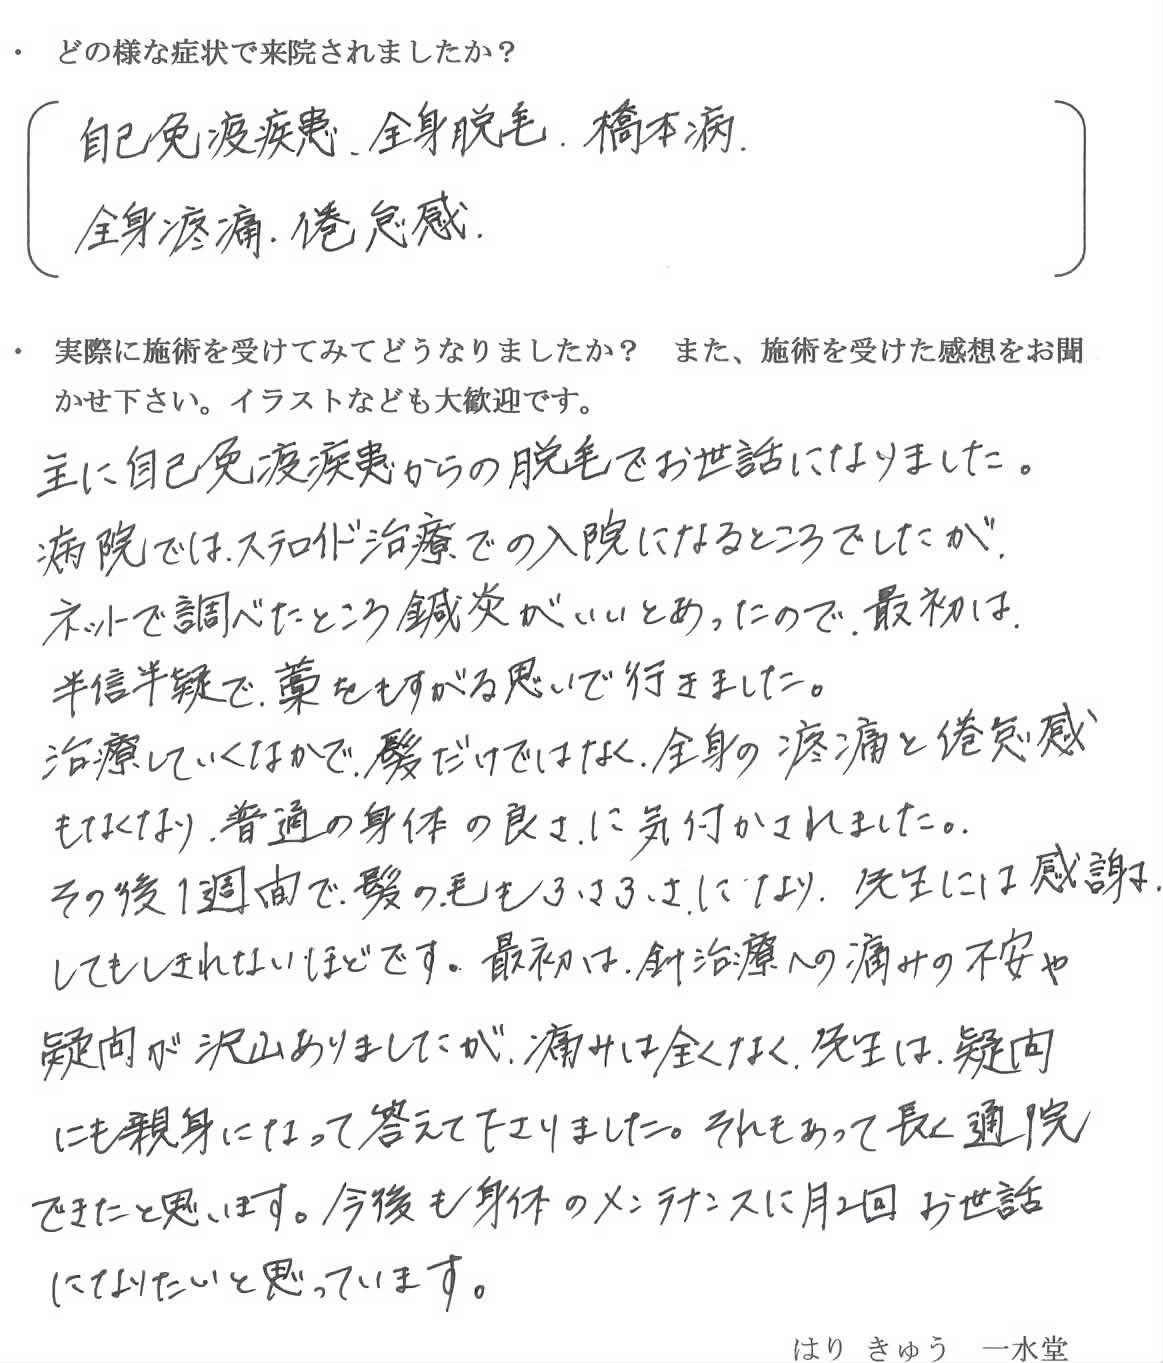 ・ どの様な症状で来院されましたか？
自己免疫疾患、全身脱毛、橋本病、
全身疼痛、倦怠感、
・ 実際に施術を受けてみてどうなりましたか？ また、施術を受けた感想をお聞
かせ下さい。イラストなども大歓迎です。
主に自己免疫疾患からの脱毛でお世話になりました。
病院では、ステロイド治療での入院になるところでしたが、
ネットで調べたところ鍼灸がいいとあったので、最初は、
半信半疑で、藁をもすがる思いで行きました。
治療していくなかで、髪だけではなく、全身の疼痛と倦怠感
もなくなり、普通の身体の良さに気付かされました。
その後1週間で、髪の毛もふさふさになり、先生には感謝は、
してもしきれないほどです。最初は、針治療への痛みの不安や
疑問が沢山ありましたが、痛みは全くなく、先生は、疑問
にも親身になって答えて下さりました。それもあって長く通院
できたと思います。今後も身体のメンテナンスに月2回お世話
になりたいと思っています。
はり きゅう 一水堂